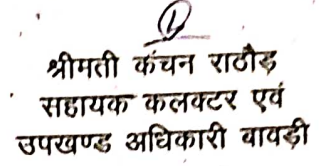 श्रीमती कंचन राठौड़
सहायक कलक्टर एवं
उपखण्ड अधिकारी बावड़ी